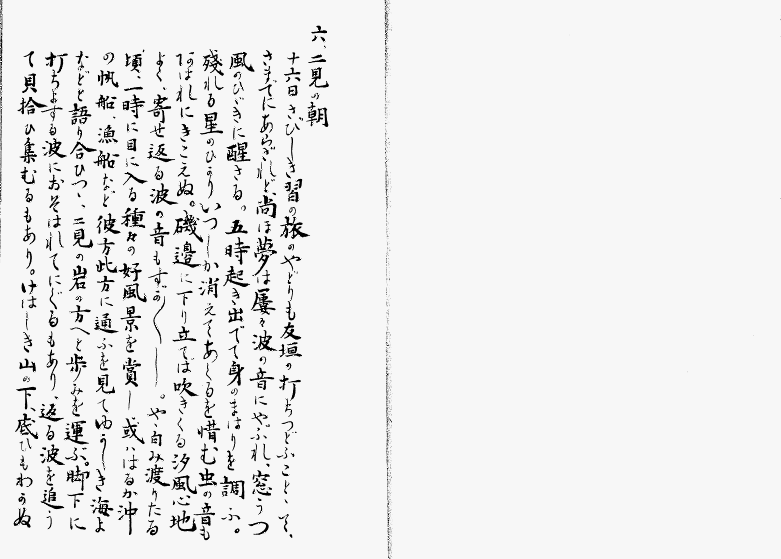 六、二見の朝
十六日さびしき習の旅のやどりも友垣の打ちつどふことゝて、
さまでにあらざれど、尚ほ夢は屢々波の音にやぶれ、窓うつ
風のひゞきに醒さる。五時起き出でて身のまはりを調ふ。
殘れる星のひかりいつしか消えてあくるを惜む虫の音も
あはれにきこえぬ。磯邊に下り立てば吹きくる汐風心地
よく、寄せ返る波の音もすが〱し。やゝ白み渡りたる
頃、一時に目に入る種々の好風景を賞し或ははるか沖
の帆船、漁船など彼方此方に通ふを見てゆかしき海よ
などと語り合ひつゝ、二見の岩の方へと歩みを運ぶ。脚下に
打ちよする波におそはれてにぐるもあり、返る波を追う
て貝拾ひ集むるもあり。けはしき山の下、底ひもわかぬ